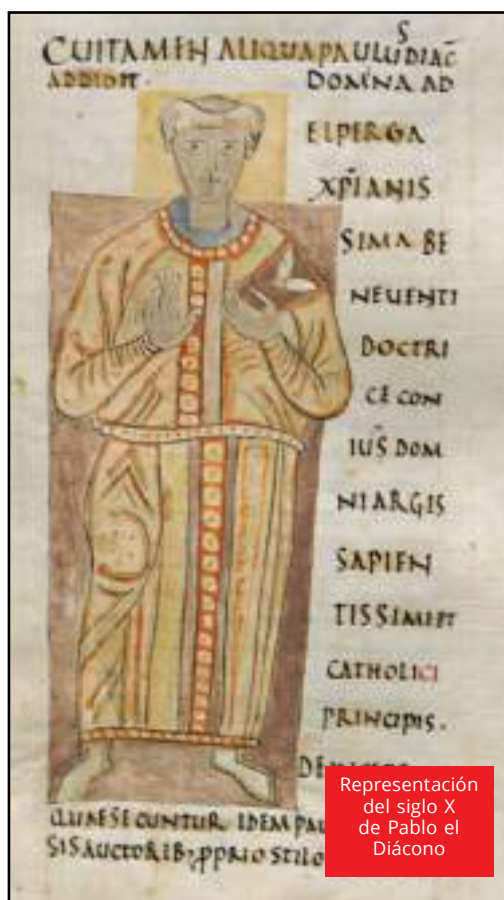 CUI TAMEN ALIQUA PAULUS DIAC̅
ADDIDIT. DOMINA AD
ELPERGA
XP̅IANIS
SIMA BE
NEUENTI
DOCTRI
CE CON
IUS̅ DOM
NI ARGIS
SAPIEN
TISSIMI ET
CATHOLICI
PRINCIPIS.
QUAE SECUNTUR IDEM
SIS AUCTORIB; PPRIO STILO
Representación
del siglo X
de Pablo el
Diácono